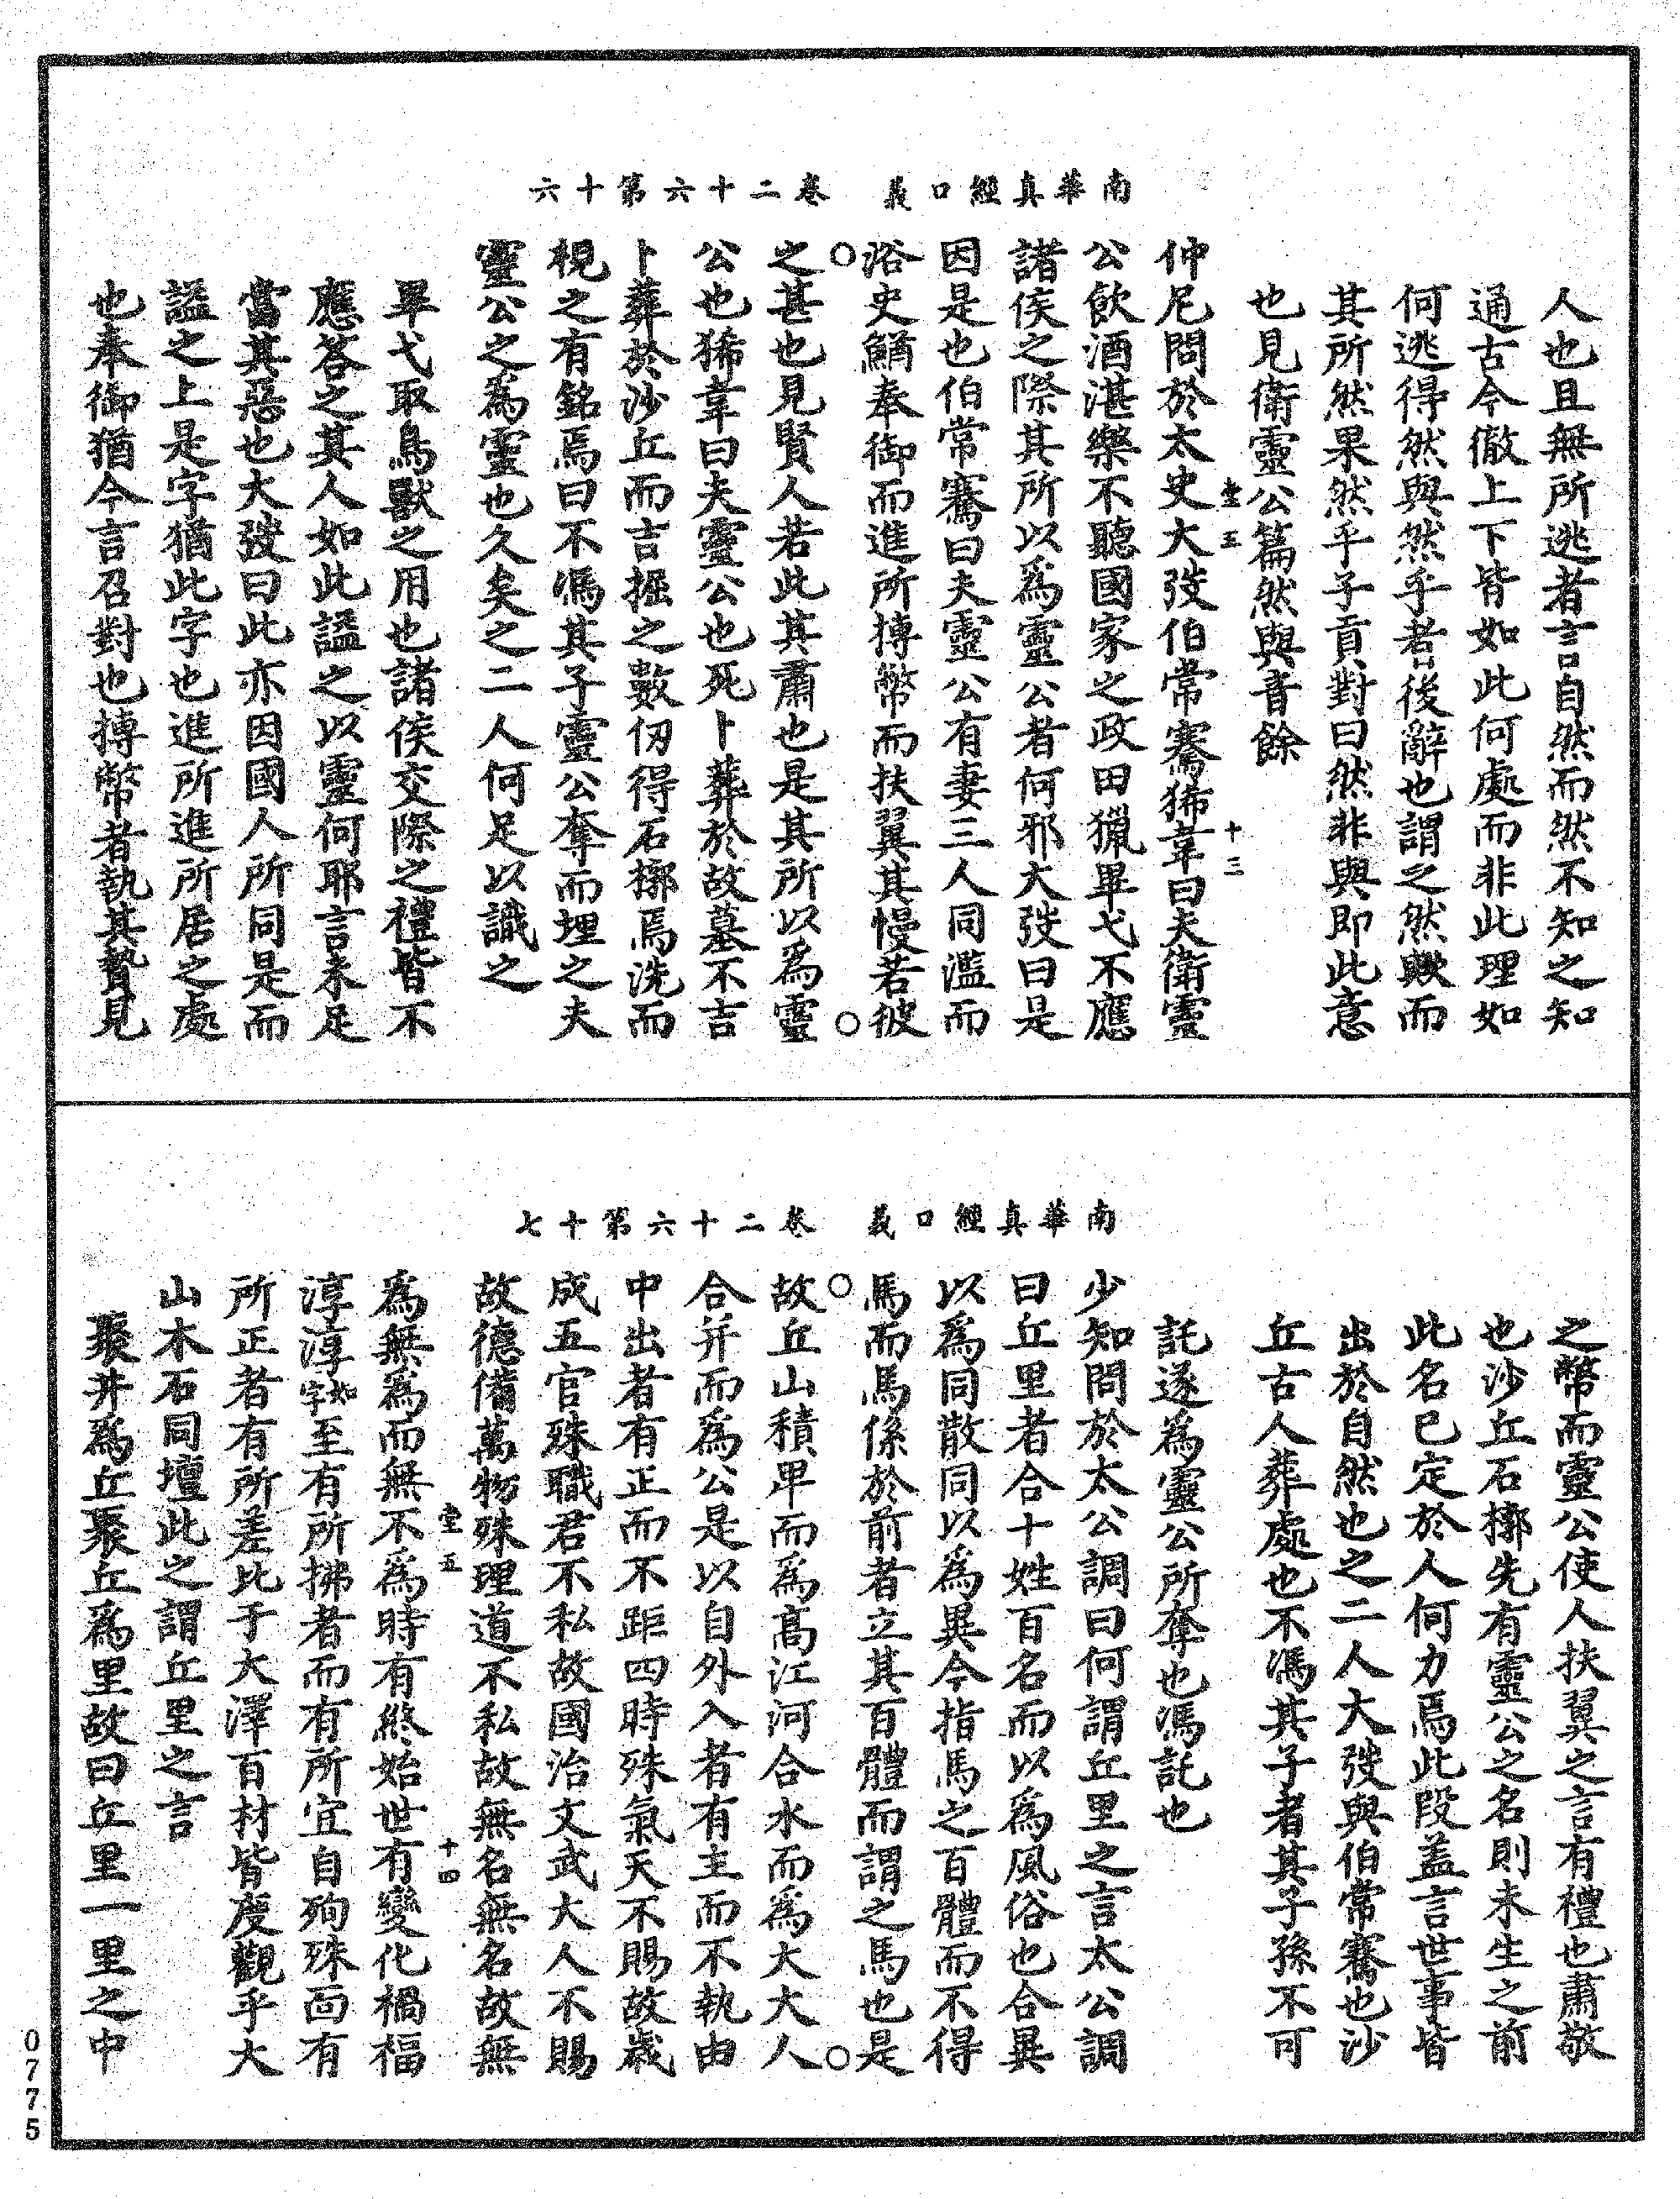 南華真經口義　卷二十六第十六
人也且無所逃者言自然而然不知之知
通古今徹上下皆如此何處而非此理如
何逃得然與然乎者後辭也謂之然歟而
其所然果然乎子貢對曰然非與即此意
也見衛靈公篇然與音餘
堂五　十三
仲尼問於太史大弢伯常騫狶韋曰夫衛靈
公飲酒湛樂不聽國家之政田獵畢弋不應
諸侯之際其所以爲靈公者何邪大弢曰是
因是也伯常騫曰夫靈公有妻三人同濫而
浴史鰌奉御而進所搏幣而扶翼其慢若彼
之甚也見賢人若此其肅也是其所以爲靈
公也狶韋曰夫靈公也死卜葬於故墓不吉
卜葬於沙丘而吉掘之數仞得石槨焉洗而
視之有銘焉曰不馮其子靈公奪而埋之夫
靈公之爲靈也久矣之二人何足以識之
畢弋取鳥獸之用也諸侯交際之禮皆不
應答之其人如此謚之以靈何耶言未足
當其惡也大弢曰此亦因國人所同是而
謚之上是字猶此字也進所進所居之處
也奉御猶今言召對也搏幣者執其贄見
南華真經口義　卷二十六第十七
之幣而靈公使人扶翼之言有禮也肅敬
也沙丘石槨先有靈公之名則未生之前
此名已定於人何力焉此段蓋言世事皆
出於自然也之二人大弢與伯常騫也沙
丘古人葬處也不馮其子者其子孫不可
託遂爲靈公所奪也馮託也
少知問於太公調曰何謂丘里之言太公調
曰丘里者合十姓百名而以爲風俗也合異
以爲同散同以爲異今指馬之百體而不得
馬而馬係於前者立其百體而謂之馬也是
故丘山積卑而爲高江河合水而爲大大人
合并而爲公是以自外入者有主而不執由
中出者有正而不距四時殊氣天不賜故歲
成五官殊職君不私故國治文武大人不賜
故德備萬物殊理道不私故無名無名故無
堂五　十四
爲無爲而無不爲時有終始世有變化禍福
淳淳如字至有所拂者而有所宜自殉殊面有
所正者有所差比于大澤百材皆度觀乎大
山木石同壇此之謂丘里之言
聚井爲丘聚丘爲里故曰丘里一里之中
0775